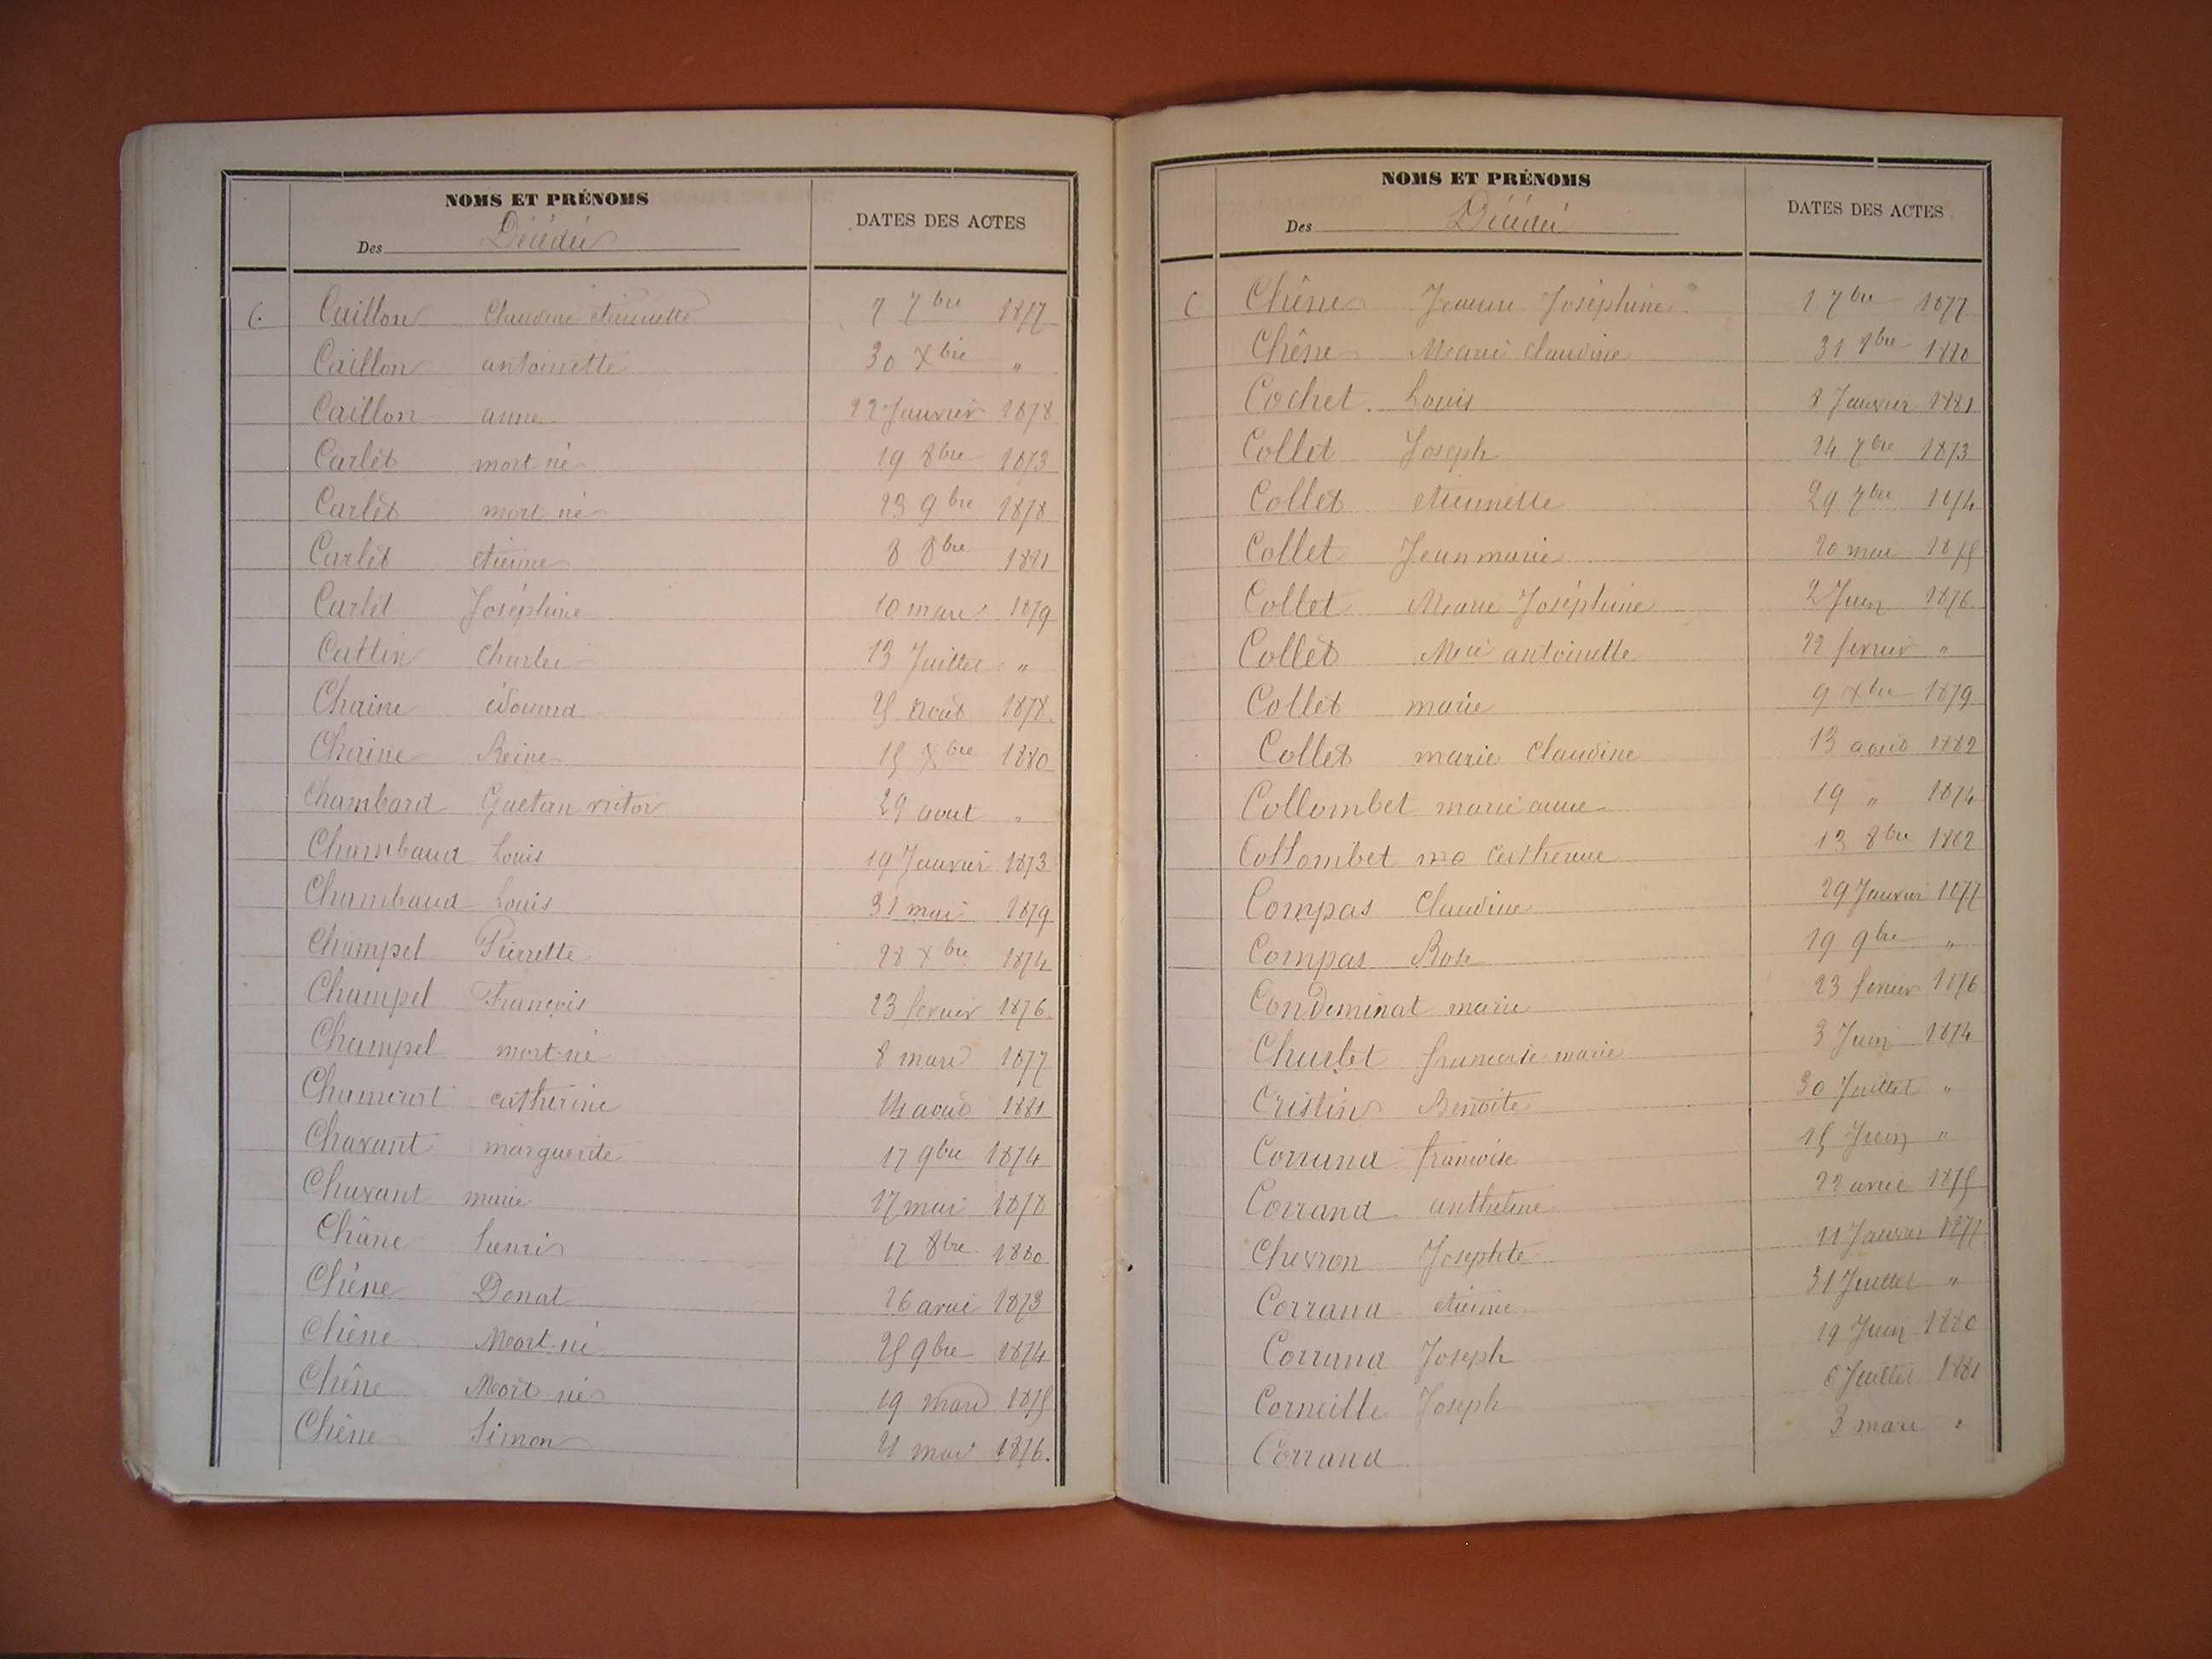 NOMS ET PRÉNOMS
Des Décédés
DATES DES ACTES
C. Caillon Claudine etiennette 7 7bre 1877
Caillon antoinette 30 Xbre "
Caillon anne 22 Janvier 1878
Carlet mort né 19 8bre 1873
Carlet mort né 23 9bre 1878
Carlet etienne 8 8bre 1881
Carlet Joséphine 10 mars 1879
Cattin Charles 13 Juillet "
Chaine édouard 25 août 1878
Chaine Reine 15 Xbre 1880
Chambard Gaetan victor 29 aout "
Chambaud Louis 19 Janvier 1873
Chambaud Louis 31 mai 1879
Champel Pierrette 28 Xbre 1874
Champel François 23 fevrier 1876
Champel mort-né 8 mars 1877
catherine 14 août 1881
Chavant marguerite 17 9bre 1874
Chavant marie 17 mai 1878
Chêne 17 8bre 1880
Chêne Donat 26 avril 1873
Chêne Mort-né 25 9bre 1874
Chêne Mort-né 19 mars 1875
Chêne Simon 21 mars 1876.
NOMS ET PRÉNOMS
Des Décédés
DATES DES ACTES
C Chêne Jeanne Joséphine 1 7bre 1877
Chêne Marie Claudine 31 8bre 1880
Cochet Louis 8 Janvier 1881
Collet Joseph 24 7bre 1873
Collet etiennette 29 7bre 1874
Collet Jean marie 20 mai 1875
Collet Marie Joséphine 2 Juin 1876
Collet Mie antoinette 22 fevrier "
Collet marie 9 Xbre 1879
Collet marie Claudine 13 août 1882
Collombet marie anne 19 " 1874
Collombet ma Catherine 13 8bre 1882
Compas Claudine 29 Janvier 1877
Compas Rose 19 9bre "
Condeminat marie 23 fevrier 1876
Churlet francoise marie 3 Juin 1874
Cristin Benoite 30 Juillet "
Corrand francoise 15 Juin "
Corrand anthelme 22 avril 1875
Chevron Josephte 11 Janvier 1877
Corrand etienne 31 Juillet "
Corrand Joseph 19 Juin 1880
Corneille Joseph 6 Juillet 1881
Corrand 3 mars "